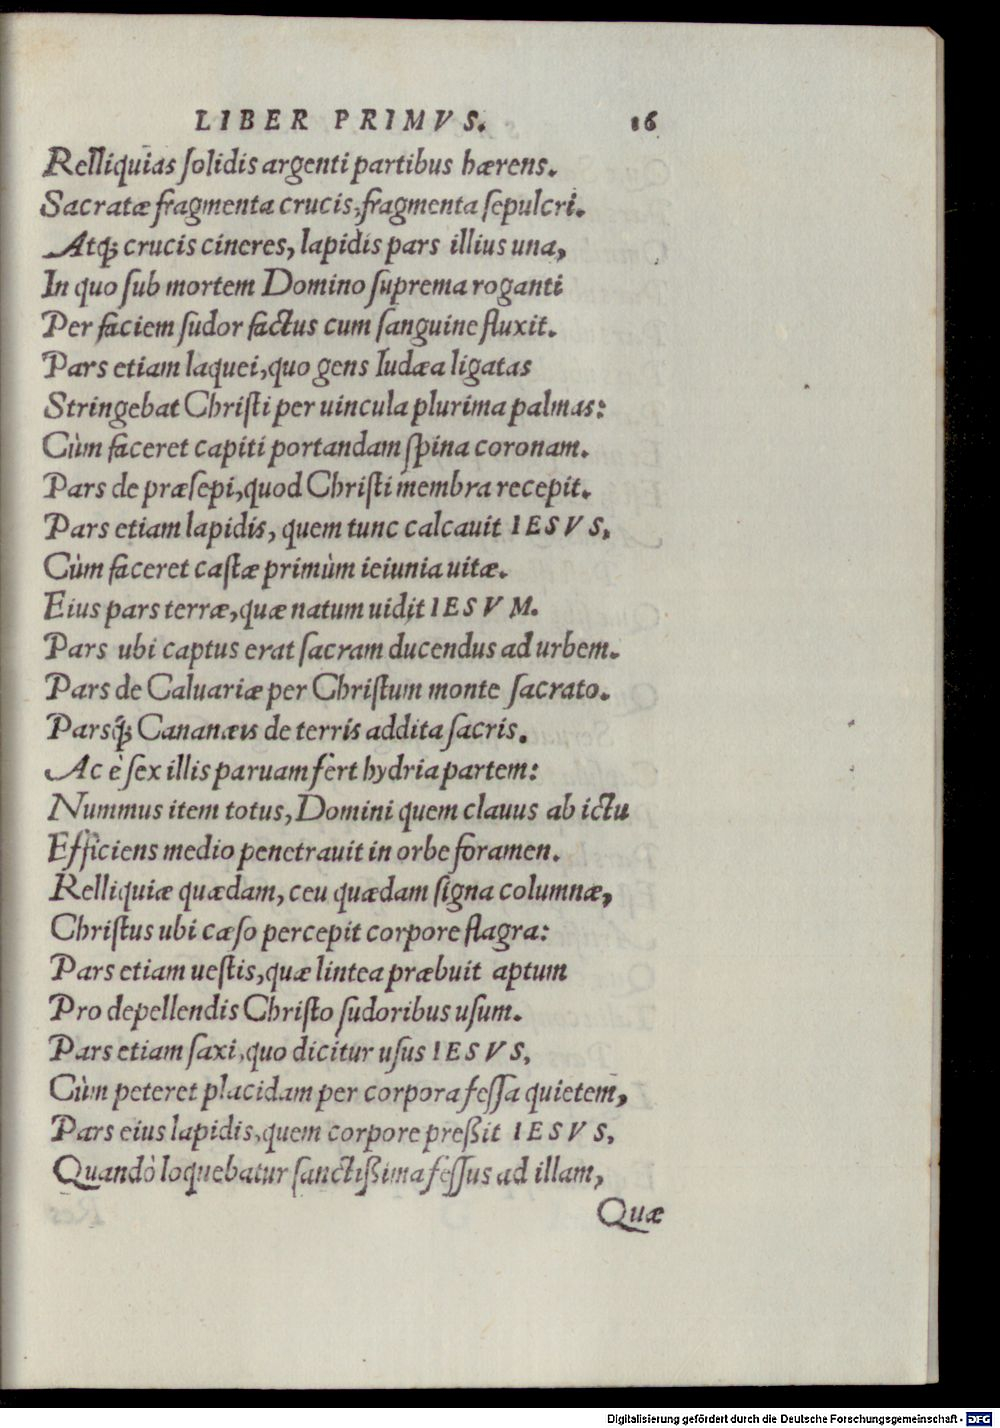 LIBER PRIMVS. 16
Relliquias ſolidis argenti partibus hærens.
Sacratæ fragmenta crucis, fragmenta ſepulcri.
Atq; crucis cineres, lapidis pars illius una,
In quo ſub mortem Domino ſuprema roganti
Per faciem ſudor factus cum ſanguine fluxit.
Pars etiam laquei, quo gens Iudæa ligatas
Stringebat Chriſti per uincula plurima palmas:
Cùm faceret capiti portandam ſpina coronam.
Pars de præſepi, quod Chriſti membra recepit.
Pars etiam lapidis, quem tunc calcauit IESVS,
Cùm faceret caſtæ primùm ieiunia uitæ.
Eius pars terræ, quæ natum uidit IESVM.
Pars ubi captus erat ſacram ducendus ad urbem.
Pars de Caluariæ per Chriſtum monte ſacrato.
Parsq́; Cananæis de terris addita ſacris.
Ac è ſex illis paruam fert hydria partem:
Nummus item totus, Domini quem clauus ab ictu
Efficiens medio penetrauit in orbe foramen.
Relliquiæ quædam, ceu quædam ſigna columnæ,
Chriſtus ubi cæſo percepit corpore flagra:
Pars etiam ueſtis, quæ lintea præbuit aptum
Pro depellendis Chriſto ſudoribus uſum.
Pars etiam ſaxi, quo dicitur uſus IESVS,
Cùm peteret placidam per corpora feſſa quietem,
Pars eius lapidis, quem corpore preßit IESVS,
Quandò loquebatur ſanctißima feſſus ad illam,
Quæ
Digitalisierung gefördert durch die Deutsche Forschungsgemeinschaft - DFG